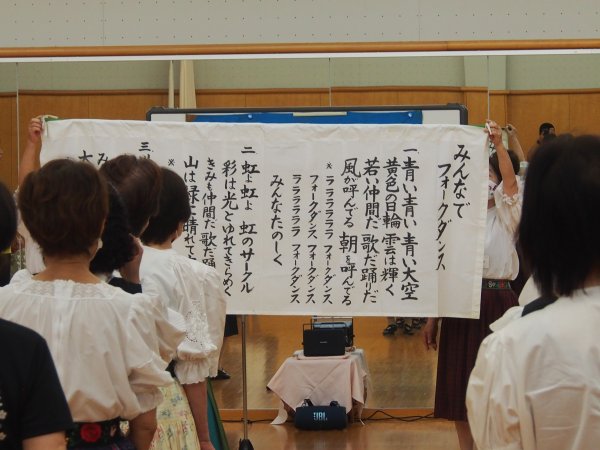 みんなで
フォークダンス
一 青い青い 青い大空
黄色の日輪 雲は輝く
若い仲間だ 歌だ踊りだ
風が呼んでる 朝を呼んでる
※ ラララララ フォークダンス
フォークダンス フォークダンス
ラララララ フォークダンス
みんなたのしく
二 虹よ虹よ 虹のサークル
彩は光とゆれてきらめく
きみも仲間だ 歌だ踊
山は緑に晴れて
※
三
み
JBL